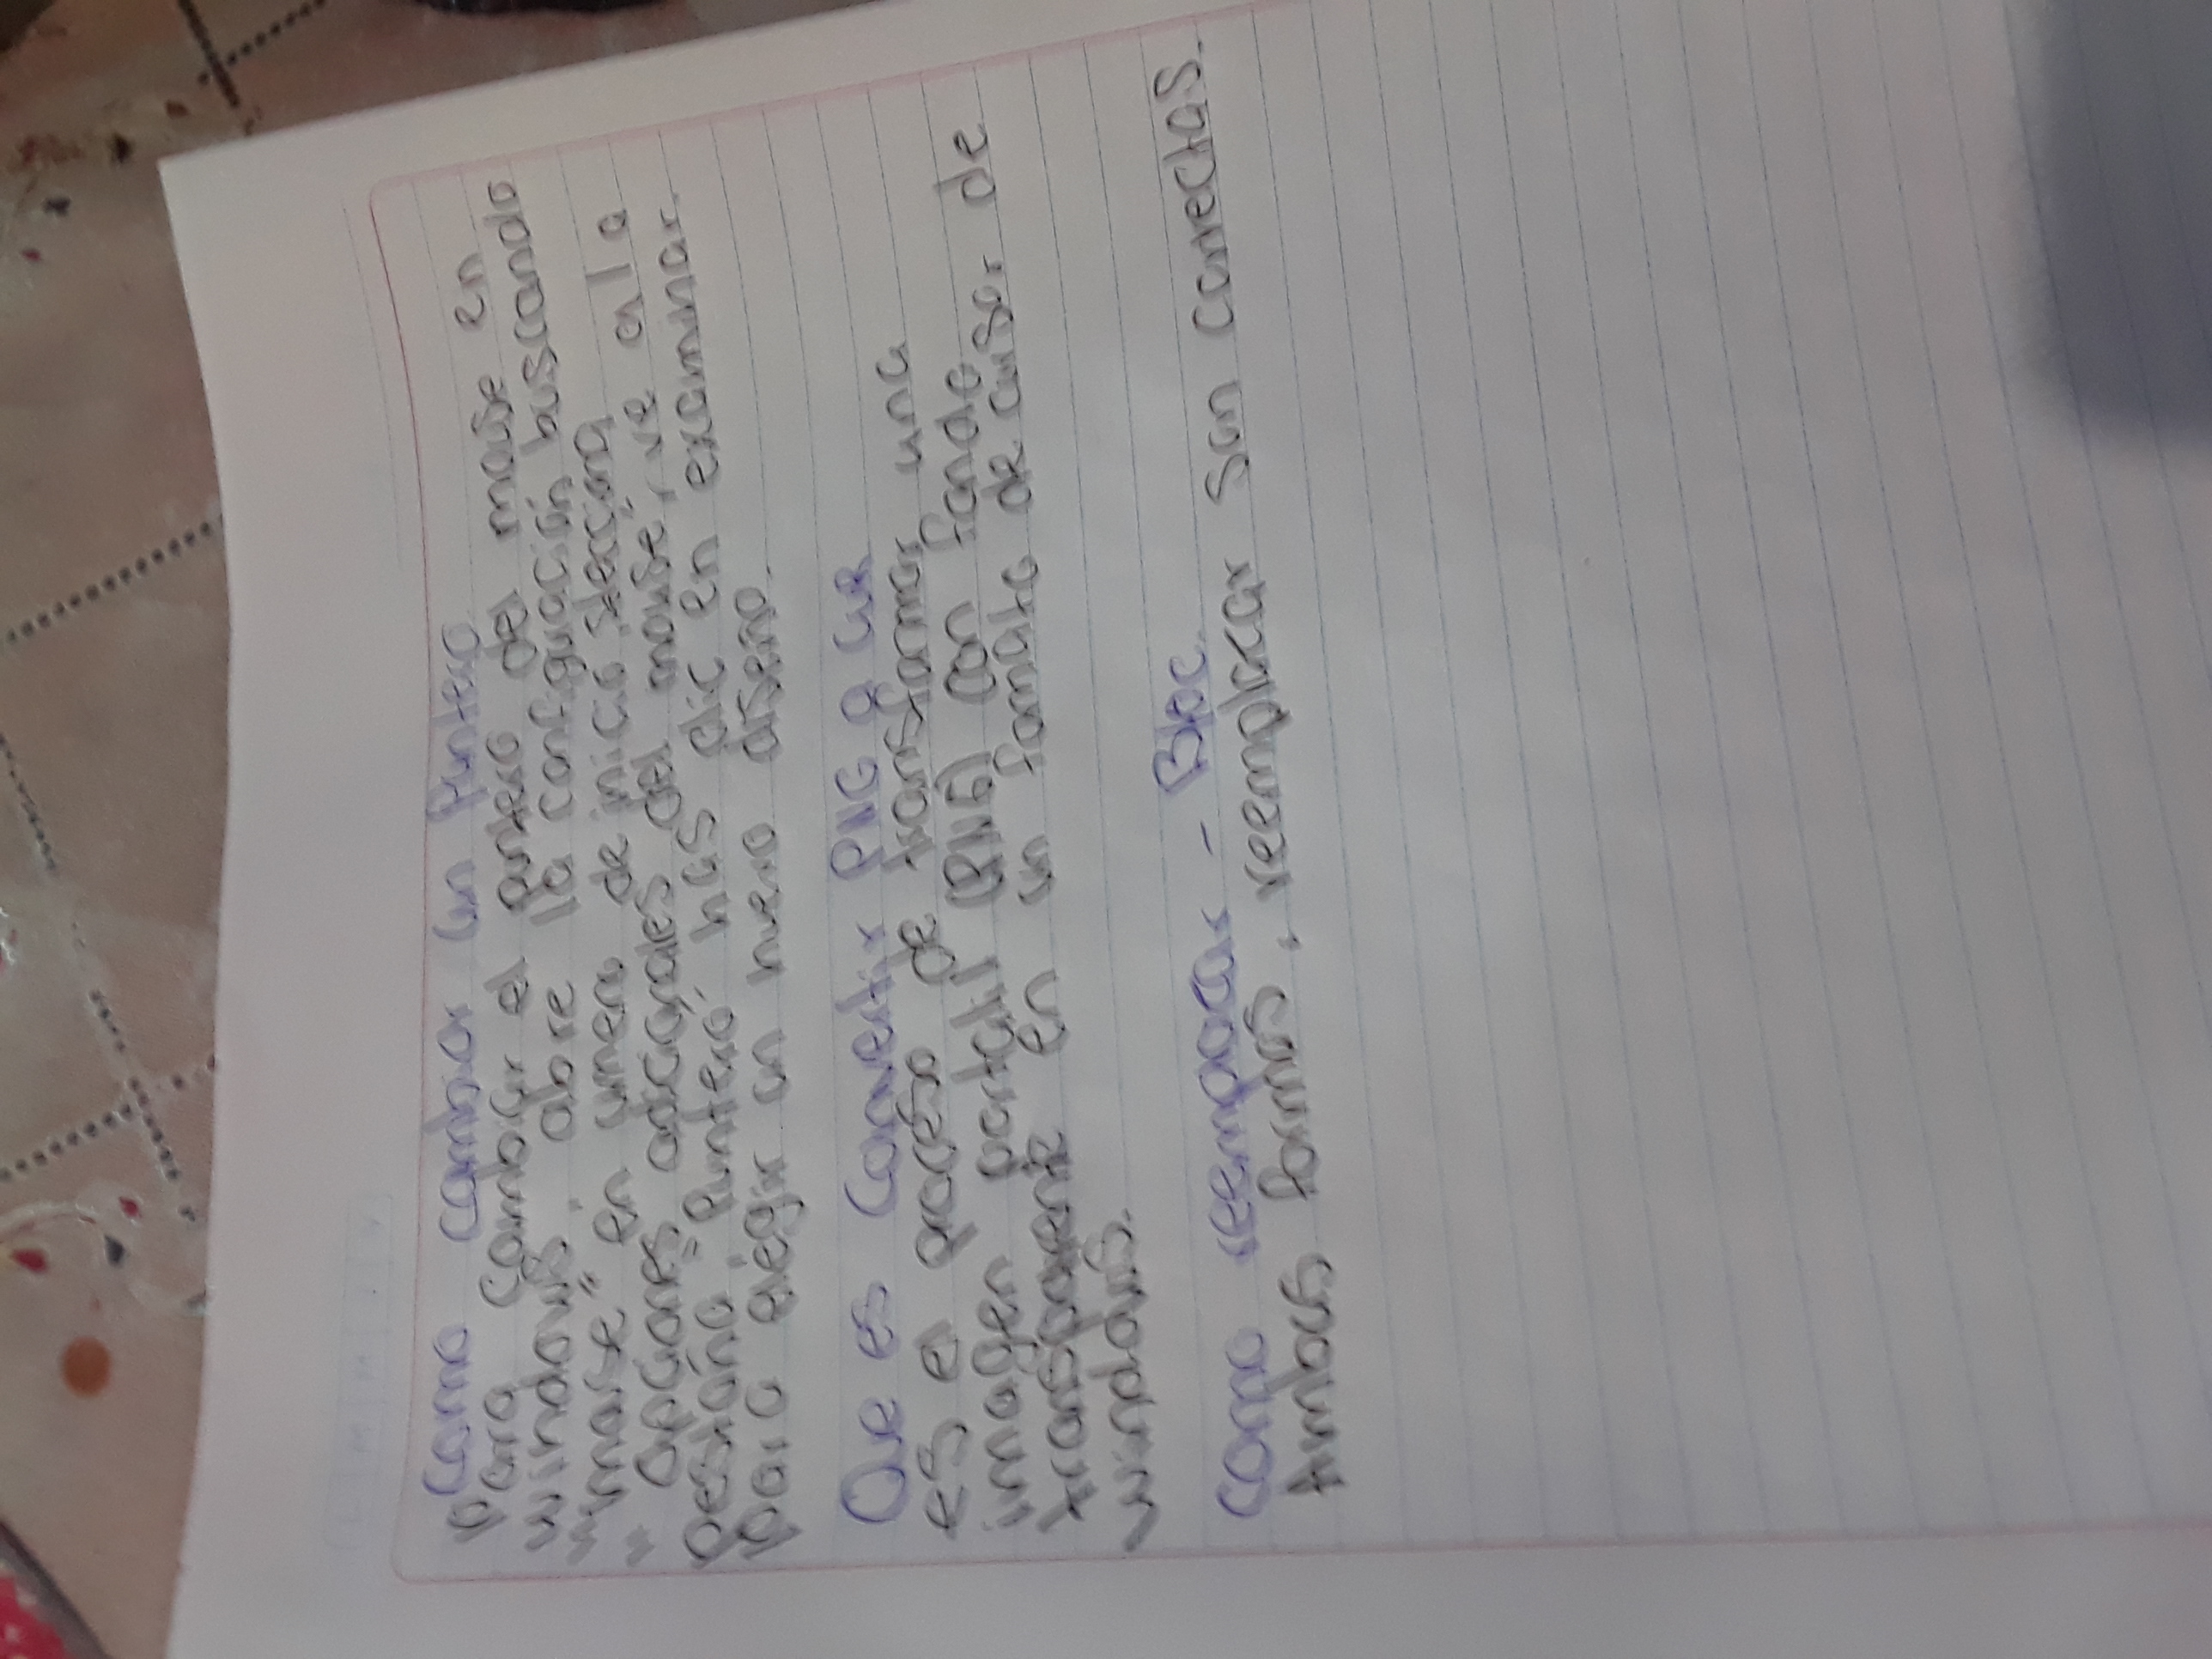 Como cambiar un Puntero
para cambiar el puntero del mouse en
windows, abre la configuación buscando
"mouse" en umenú de inicio sleaciona
"opciones adicionales del mouse, ve a la
pestaña "Puntero" has clic en examinar.
para elegir un nuevo diseño.
Que es Convertir PNG a cur
es el proceso de transformar una
imagen portatil (PNG) con fondo
transparente en un formato de cursor de
windows.
como reemplazar - Bloc.
Ambas formas, reemplazar son correctas.